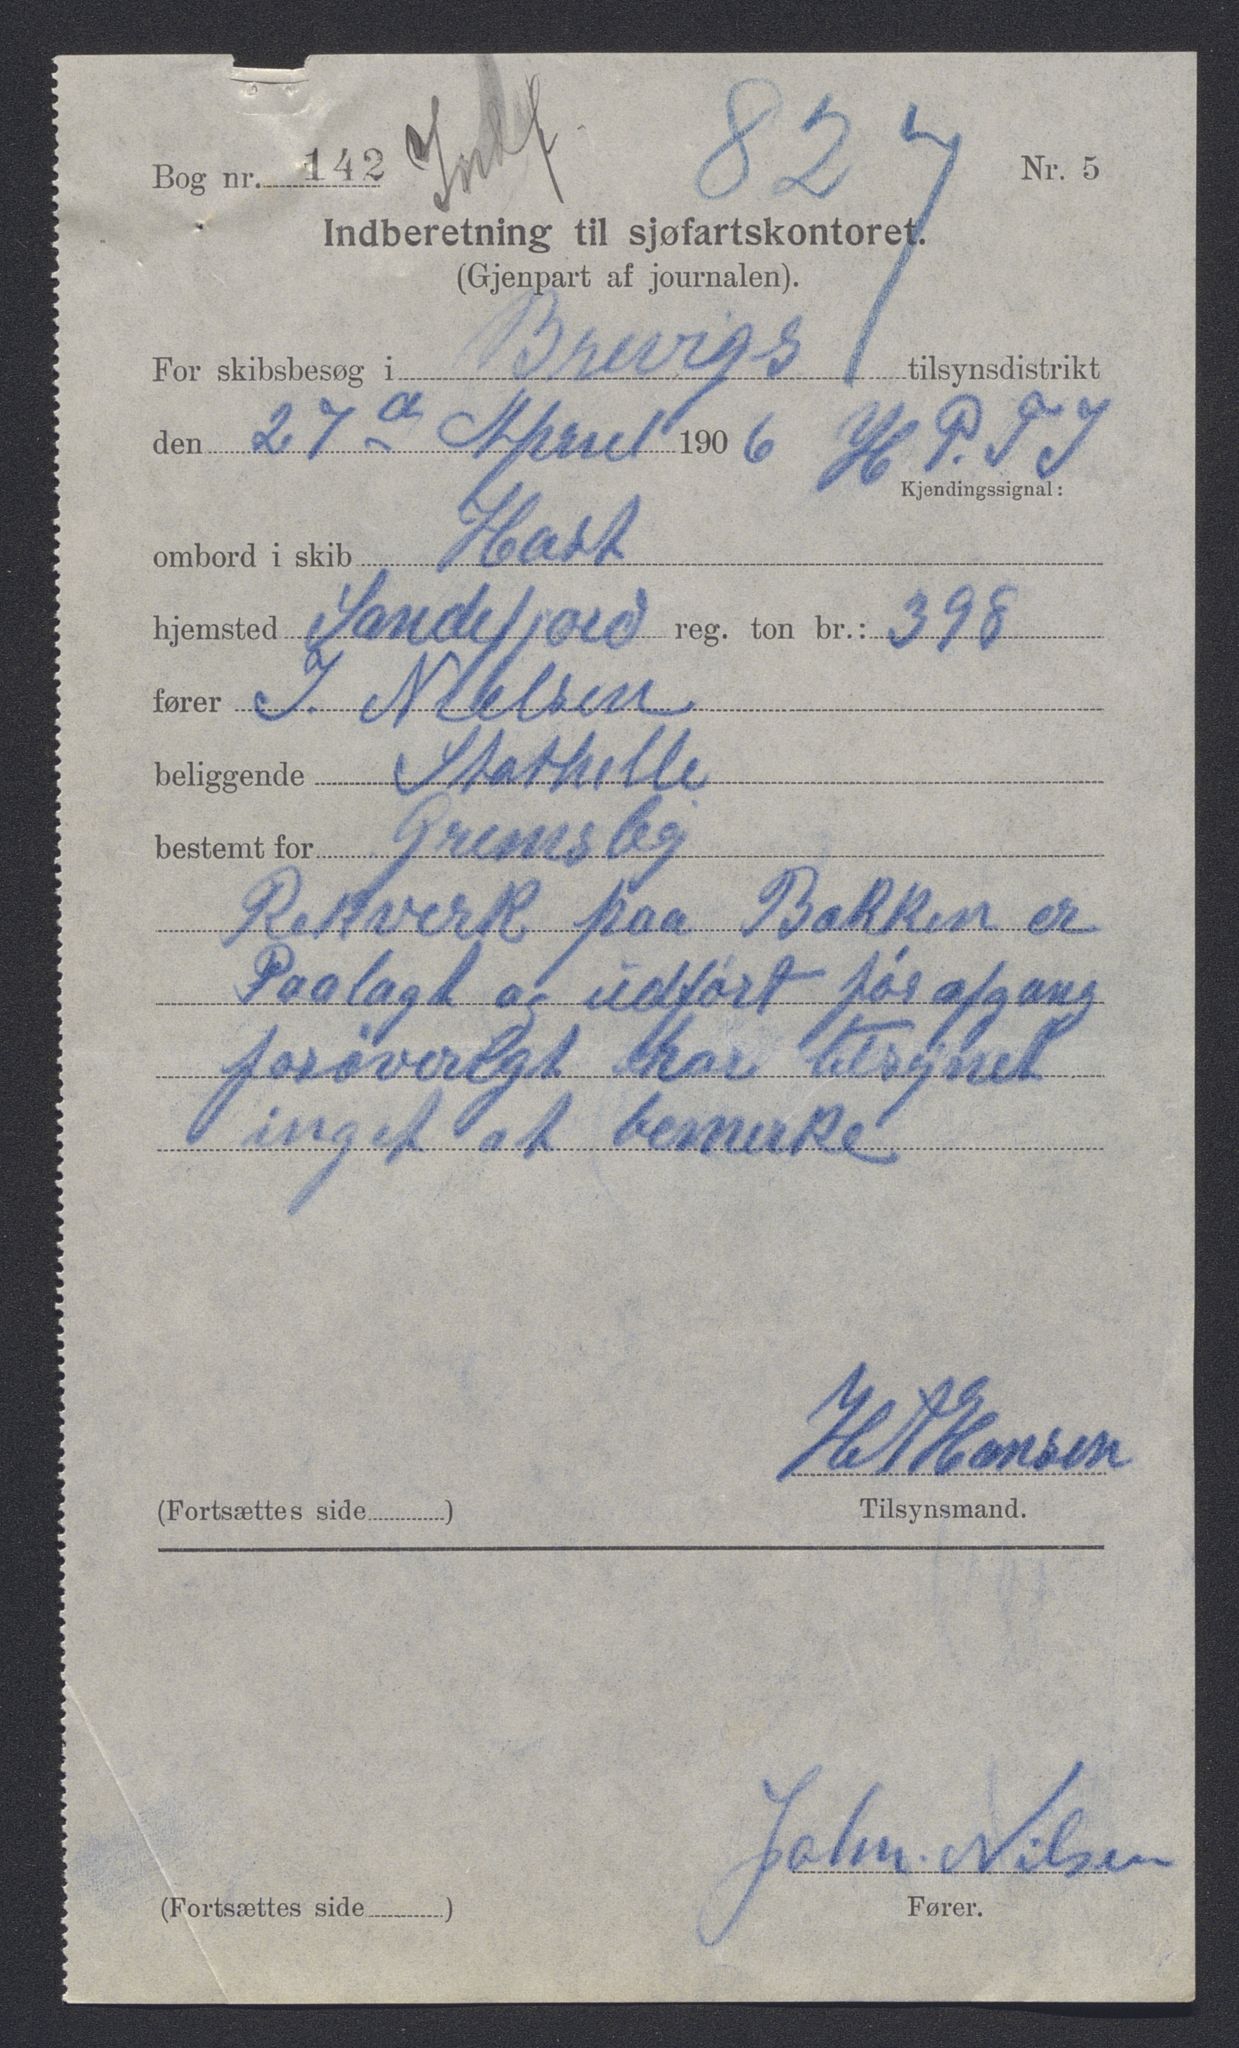 Bog nr. 142 Indf. 827 Nr. 5
Indberetning til sjøfartskontoret.
(Gjenpart af journalen).
For skibsbesøg i Brevigs tilsynsdistrikt
den 27 d April 1906 H P. T J
Kjendingssignal:
ombord i skib Hast
hjemsted Sandefjord reg. ton br.: 398
fører J. Nielsen
beliggende Stathelle
bestemt for Gremsby
Rekverk paa Bakken er
Paalagt og udført før afgang
forøverigt har tilsynet
inget at bemerke
H A Hansen
(Fortsættes side ) Tilsynsmand.
John. Nilsen
(Fortsættes side ) Fører.